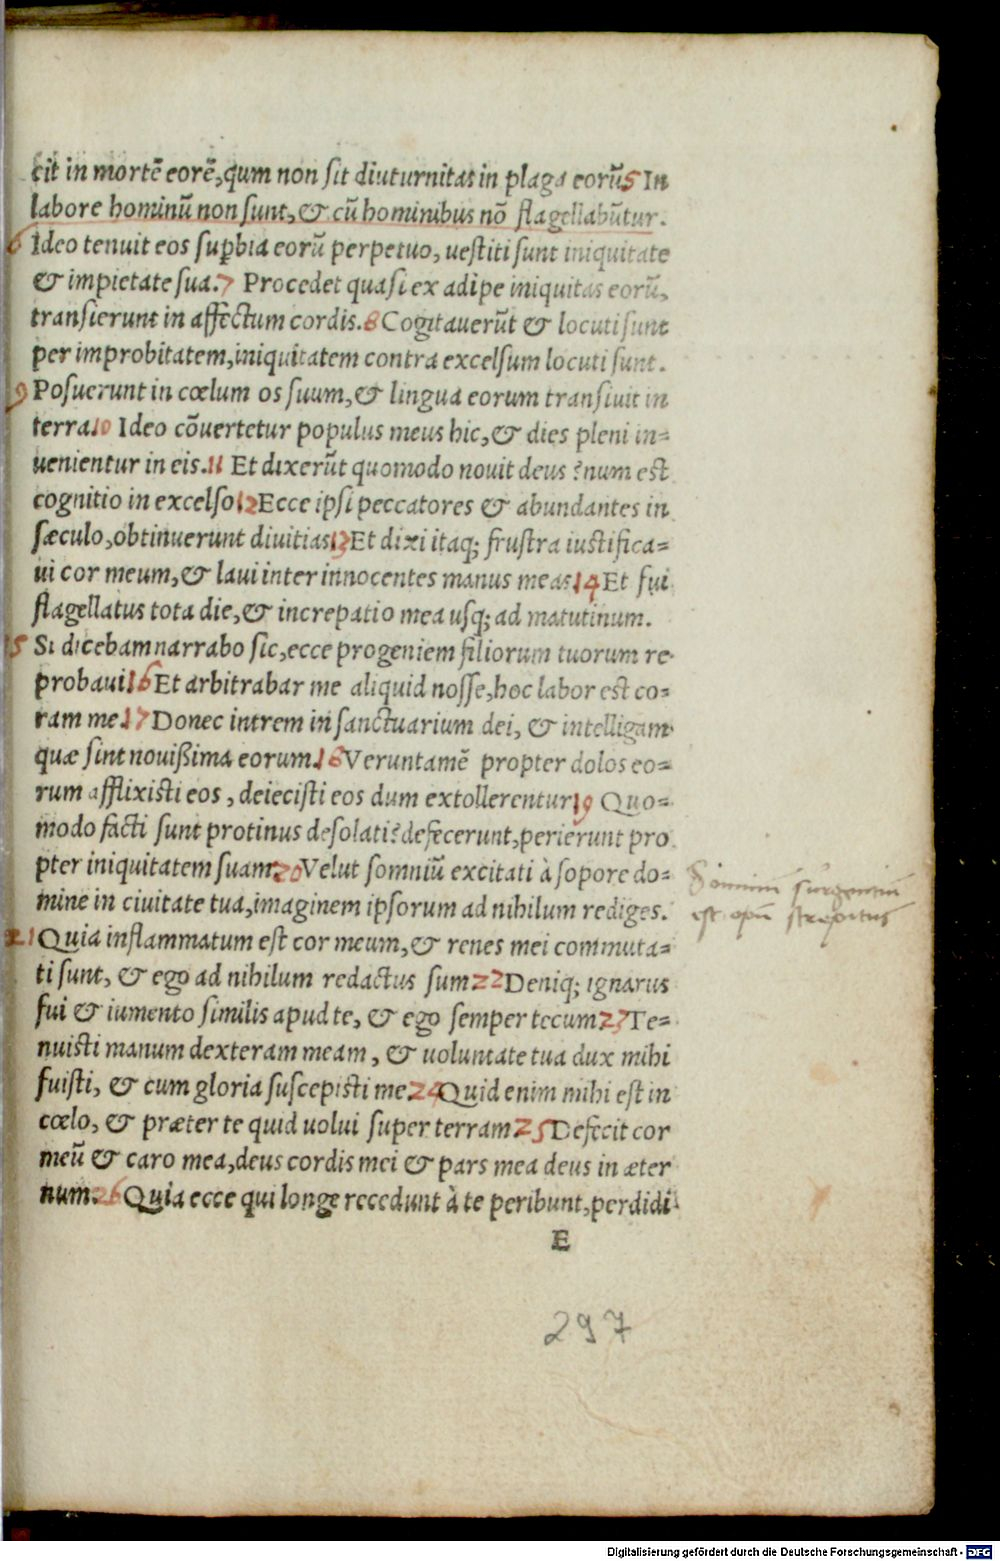 cit in mortē eorē, qum non sit diuturnitas in plaga eorū 5 In
labore hominū non sunt, & cū hominibus nō flagellabūtur.
6 Ideo tenuit eos sup̄bia eorū perpetuo, uestiti sunt iniquitate
& impietate sua. 7 Procedet quasi ex adipe iniquitas eorū,
transierunt in affectum cordis. 8 Cogitauerūt & locuti sunt
per improbitatem, iniquitatem contra excelsum locuti sunt.
9 Posuerunt in cœlum os suum, & lingua eorum transiuit in
terra. 10 Ideo cōuertetur populus meus hic, & dies pleni in=
uenientur in eis. 11 Et dixerūt quomodo nouit deus ? num est
cognitio in excelso 12 Ecce ipsi peccatores & abundantes in
sæculo, obtinuerunt diuitias 13 Et dixi itaq; frustra iustifica=
ui cor meum, & laui inter innocentes manus meas. 14 Et fui
flagellatus tota die, & increpatio mea usq; ad matutinum.
15 Si dicebam narrabo sic, ecce progeniem filiorum tuorum re-
probaui. 16 Et arbitrabar me aliquid nosse, hoc labor est co=
ram me. 17 Donec intrem in sanctuarium dei, & intelligam
quæ sint nouißima eorum. 18 Veruntamē propter dolos eo=
rum afflixisti eos, deiecisti eos dum extollerentur 19 Quo=
modo facti sunt protinus desolati? defecerunt, perierunt pro
pter iniquitatem suam. 20 Velut somniū excitati à sopore do=
mine in ciuitate tua, imaginem ipsorum ad nihilum rediges.
Somnium surgentium
est opū strepitus
21 Quia inflammatum est cor meum, & renes mei commuta=
ti sunt, & ego ad nihilum redactus sum 22 Deniq; ignarus
fui & iumento similis apud te, & ego semper tecum 23 Te=
nuisti manum dexteram meam, & uoluntate tua dux mihi
fuisti, & cum gloria suscepisti me. 24 Quid enim mihi est in
cœlo, & præter te quid uolui super terram 25 Defecit cor
meū & caro mea, deus cordis mei & pars mea deus in æter
num. 26 Quia ecce qui longe recedunt à te peribunt, perdidi-
E
297
Digitalisierung gefördert durch die Deutsche Forschungsgemeinschaft - DFG